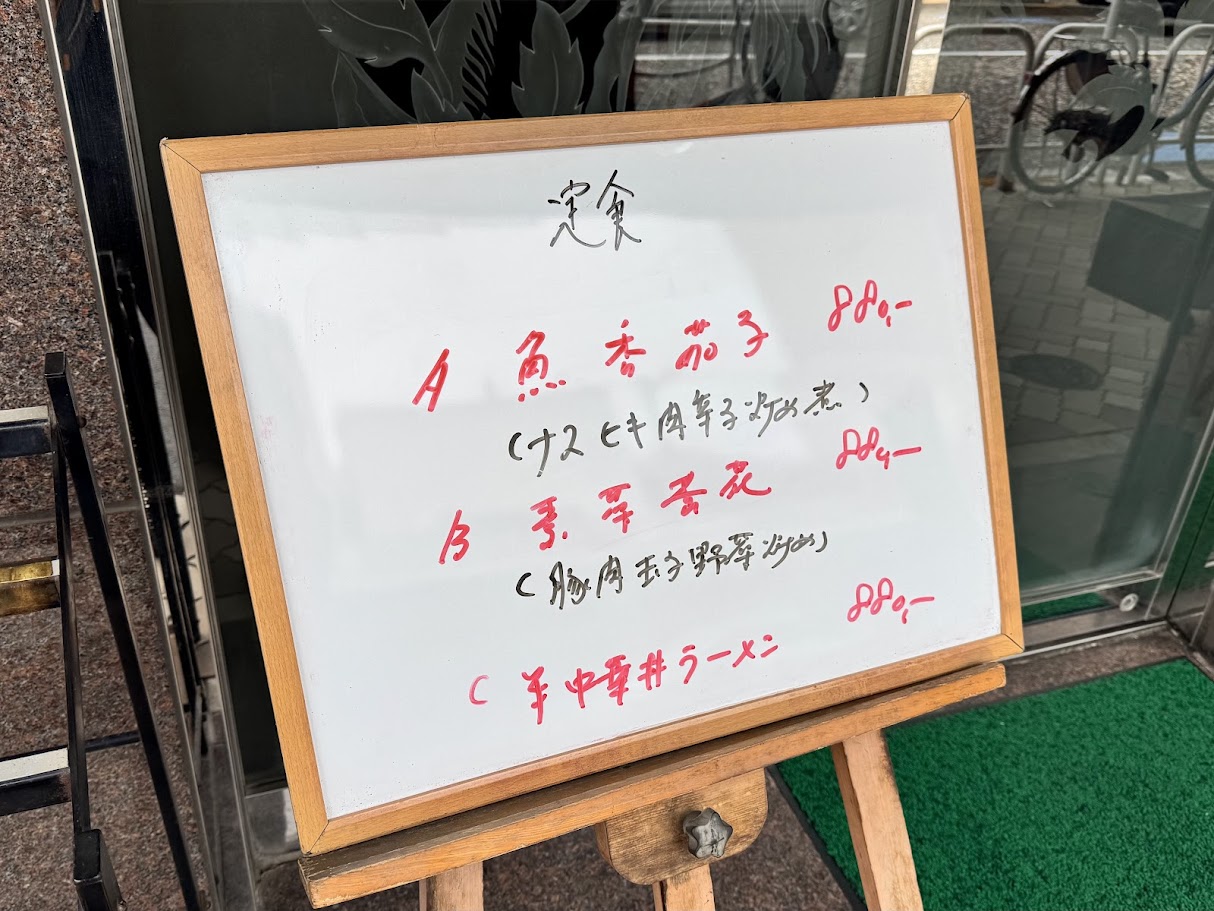 定食
A 魚香茄子 880,-
(ナスヒキ肉辛子炒め煮)
B 素菜蛋花 880,-
(豚肉玉子野菜炒め)
C 半中華丼ラーメン 880,-